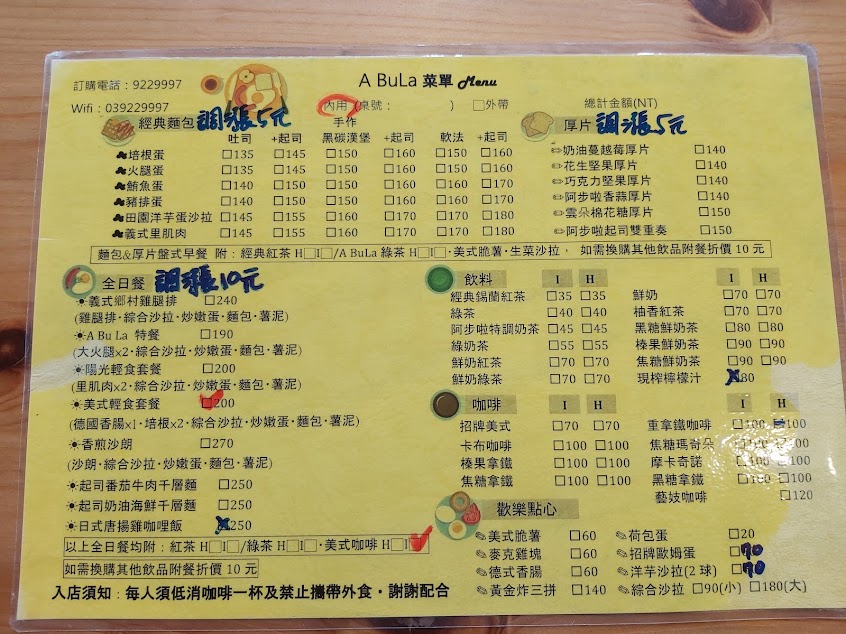 A BuLa 菜單 Menu
訂購電話：9229997
Wifi：039229997
內用 (桌號： ) □外帶 總計金額(NT)
經典麵包 調漲5元
手作
吐司 +起司 黑碳漢堡 +起司 軟法 +起司
培根蛋 □135 □145 □150 □160 □150 □160
火腿蛋 □135 □145 □150 □160 □150 □160
鮪魚蛋 □140 □150 □150 □160 □160 □170
豬排蛋 □140 □150 □150 □160 □160 □170
田園洋芋蛋沙拉 □145 □155 □160 □170 □170 □180
義式里肌肉 □145 □155 □160 □170 □160 □170
厚片 調漲5元
奶油蔓越莓厚片 □140
花生堅果厚片 □140
巧克力堅果厚片 □140
阿步啦香蒜厚片 □140
雲朵棉花糖厚片 □150
阿步啦起司雙重奏 □150
麵包&厚片盤式早餐 附：經典紅茶 H□I□/A BuLa 綠茶 H□I□‧美式脆薯‧生菜沙拉， 如需換購其他飲品附餐折價 10 元
全日餐 調漲10元
義式鄉村雞腿排 □240
(雞腿排‧綜合沙拉‧炒嫩蛋‧麵包‧薯泥)
A Bu La 特餐 □190
(大火腿x2‧綜合沙拉‧炒嫩蛋‧麵包‧薯泥)
陽光輕食套餐 □200
(里肌肉×2‧綜合沙拉‧炒嫩蛋‧麵包‧薯泥)
美式輕食套餐 □200
(德國香腸×1‧培根×2‧綜合沙拉‧炒嫩蛋‧麵包‧薯泥)
香煎沙朗 □270
(沙朗‧綜合沙拉‧炒嫩蛋‧麵包‧薯泥)
起司番茄牛肉千層麵 □250
起司奶油海鮮千層麵 □250
日式唐揚雞咖哩飯 □250
以上全日餐均附：紅茶 H□I□/綠茶 H□I□‧美式咖啡 H□I
如需換購其他飲品附餐折價 10 元
飲料 I H I H
經典錫蘭紅茶 □35 □35 鮮奶 □70 □70
綠茶 □40 □40 柚香紅茶 □70 □70
阿步啦特調奶茶 □45 □45 黑糖鮮奶茶 □80 □80
綠奶茶 □55 □55 榛果鮮奶茶 □90 □90
鮮奶紅茶 □70 □70 焦糖鮮奶茶 □90 □90
鮮奶綠茶 □70 □70 現榨檸檬汁 □80
咖啡 I H I H
招牌美式 □70 □70 重拿鐵咖啡 □100 □100
卡布咖啡 □100 □100 焦糖瑪奇朵 □100 □100
榛果拿鐵 □100 □100 摩卡奇諾 □100 □100
焦糖拿鐵 □100 □100 黑糖拿鐵 □100 □100
藝妓咖啡 □120
歡樂點心
美式脆薯 □60 荷包蛋 □20
麥克雞塊 □60 招牌歐姆蛋 □70
德式香腸 □60 洋芋沙拉(2 球) □70
黃金炸三拼 □140 綜合沙拉 □90(小) □180(大)
入店須知：每人須低消咖啡一杯及禁止攜帶外食‧謝謝配合